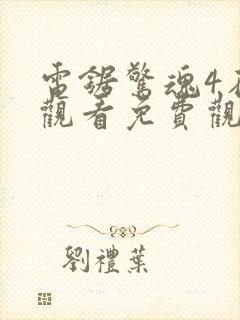 電鋸驚魂4
觀看免費觀
劉禮葉